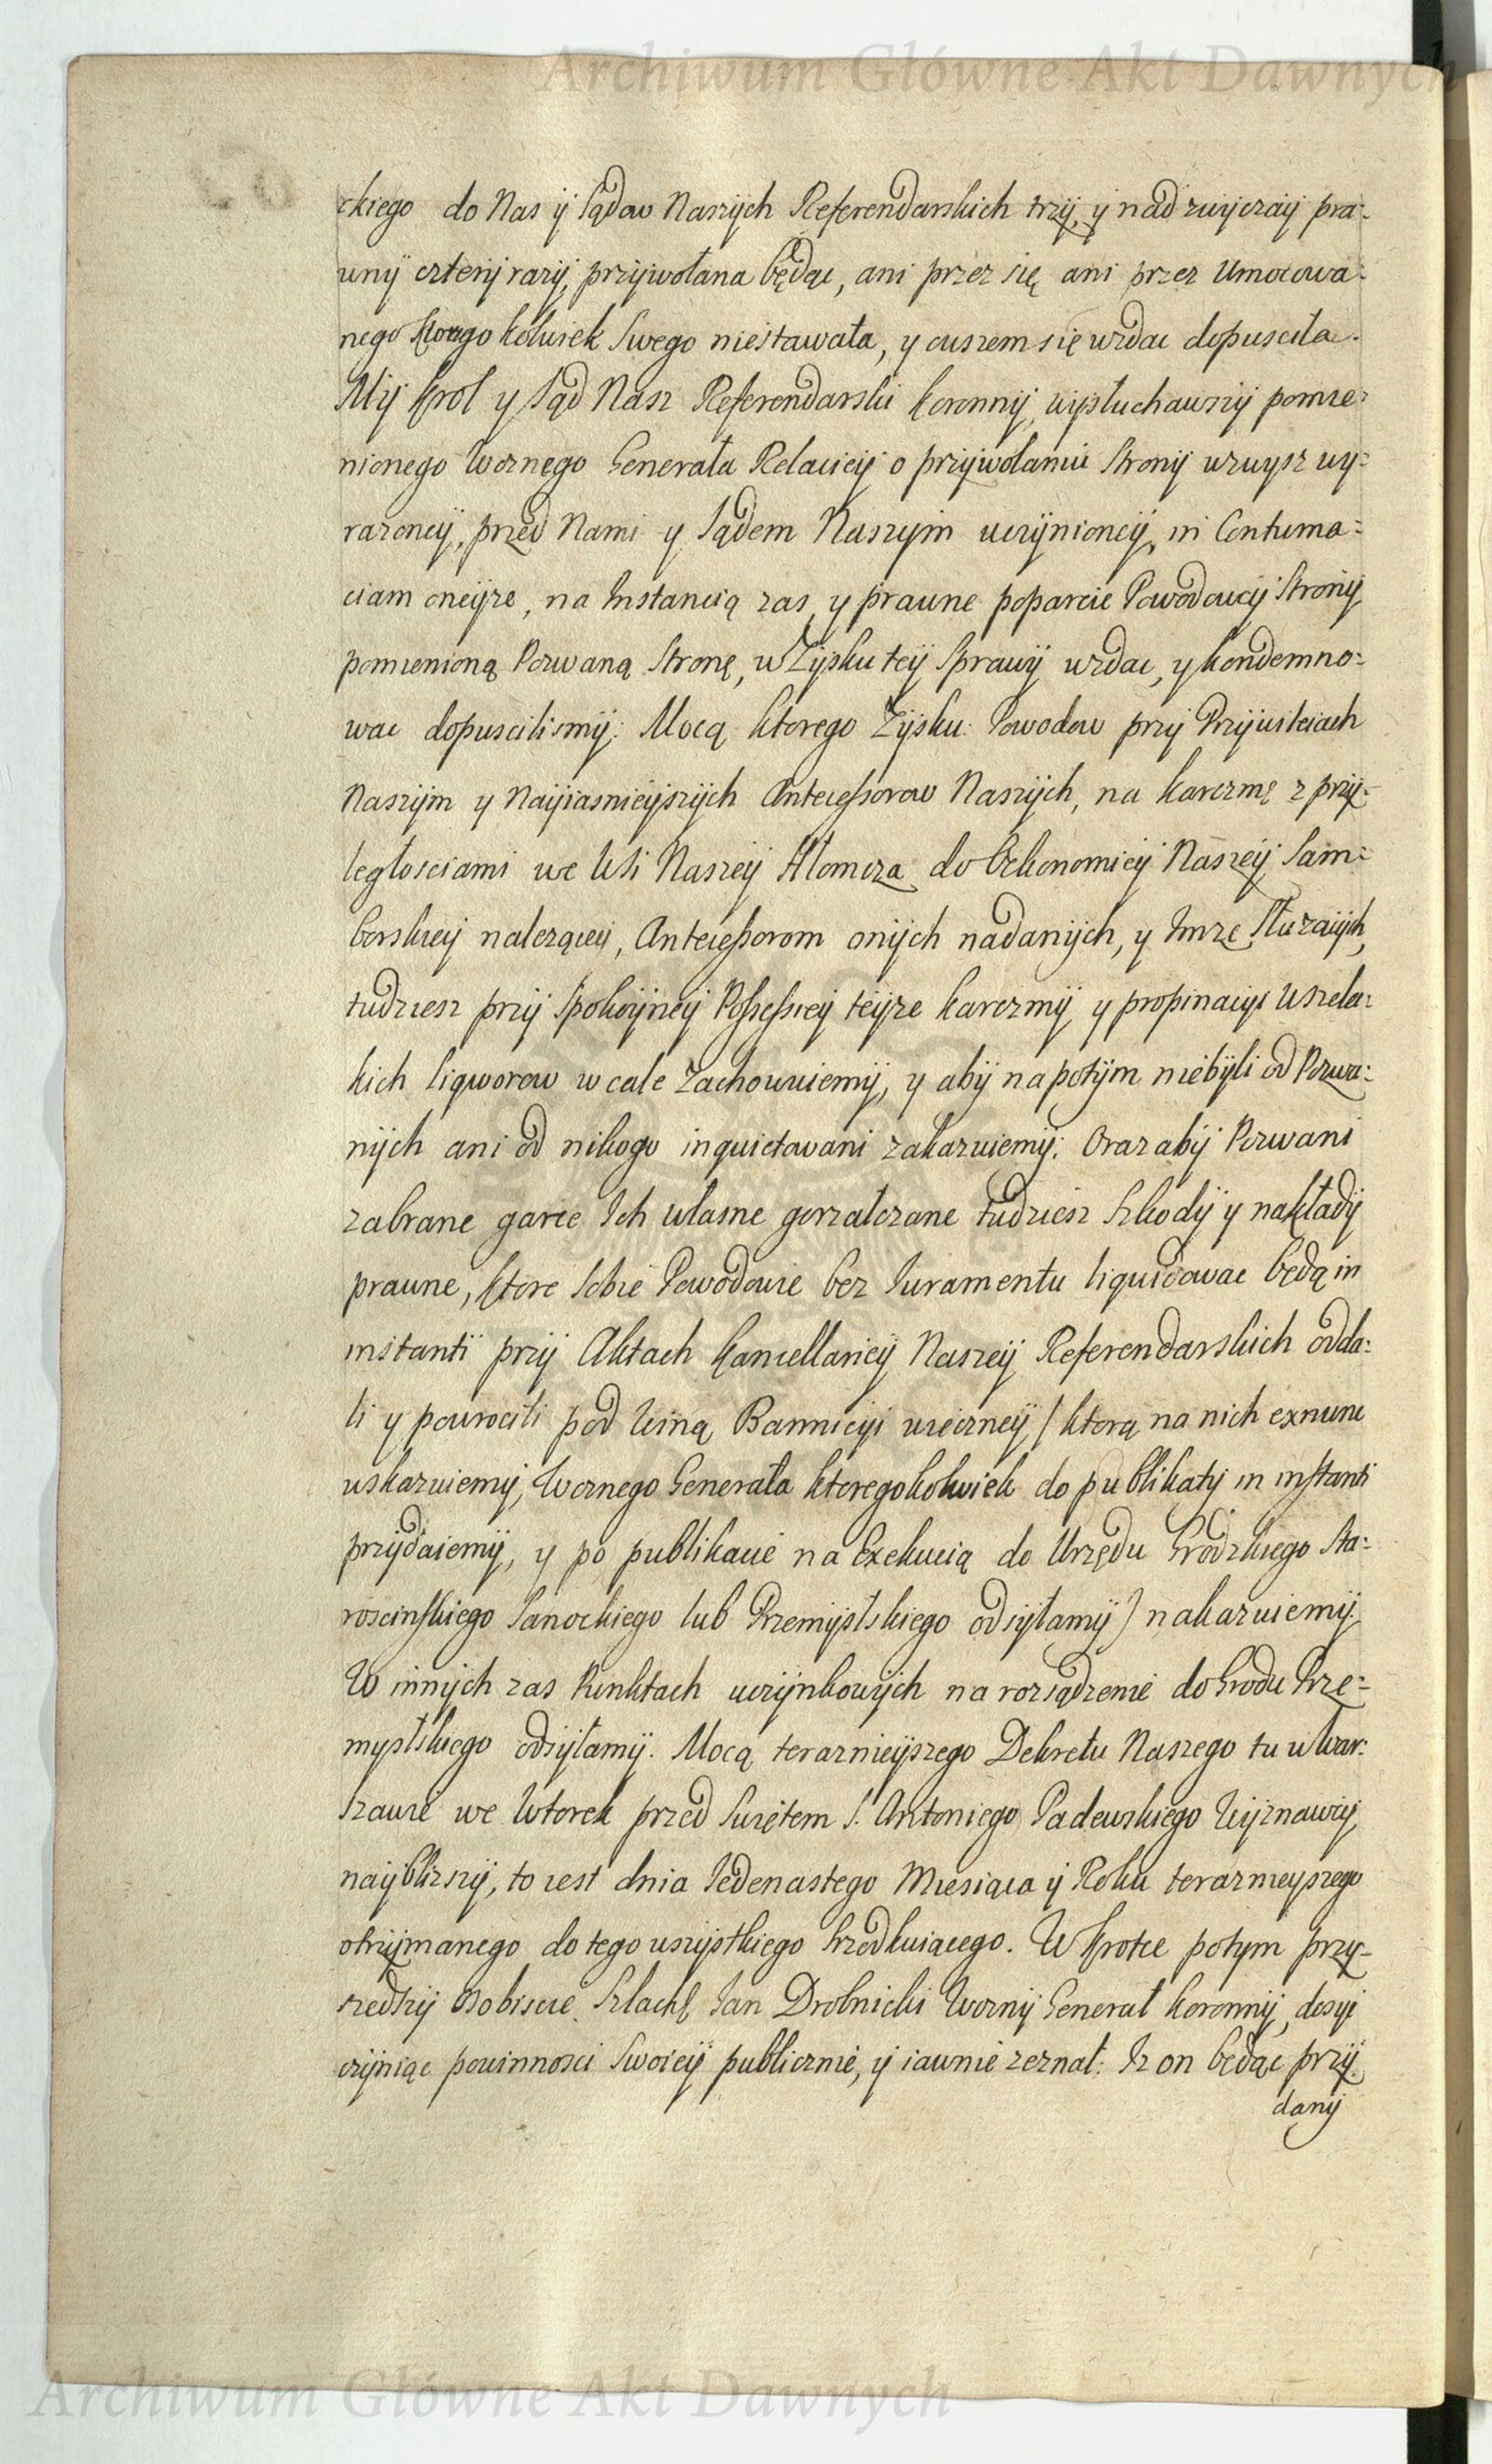 Archiwum Główne Akt Dawnych
ckiego do Nas ÿ Sądow Naszÿch Referendarskich trzÿ, y nad zwÿczaÿ pra:
wnÿ czterÿ razÿ, przÿwołana będąc, ani przez się ani przez Umocowa:
nego ktorego kolwiek Swego niestawała, y owszem się wzdac dopuscila.
Mÿ Krol y Sąd Nasz Referendarski Koronnÿ, wÿsłuchawszÿ pomie:
nionego Woznego Generała Relacieÿ o przÿwołaniu Stronÿ wzwysz wy:
razoneÿ, przed Nami y Sądem Naszÿm uczÿnioneÿ, in Contuma:
ciam oneÿze, na Instancią zas, y prawne poparcie Powodoweÿ Stronÿ
pomienioną Pozwaną Stronę, w Zÿsku teÿ Sprawÿ wzdac, y kondemno:
wac dopuscilismÿ: Mocą ktorego Zÿsku Powodow przÿ Przÿwileiach
Naszÿm y Naÿiasnieÿszÿch Antecessorow Naszÿch, na karczmę z przÿ:
ległosciami we Wsi Naszeÿ Hłomcza do Oekonomieÿ Naszeÿ Sam:
borskieÿ nalezącei, Antecessorom onÿch nadanÿch, y Imze Służaiÿch,
tudziesz przÿ Spokoÿneÿ Possessieÿ teÿze karczmÿ, y propinacÿi wszela:
kich liqworow w cale Zachowuiemÿ, y abÿ napotÿm niebÿli od Pozwa:
nÿch ani od nikogo inquietowani zakazuiemÿ: Oraz abÿ Pozwani
zabrane garce Ich własne gorzałczane tudziesz Szkodÿ y nakładÿ
prawne, ktore Sobie Powodowie bez Iuramentu liquidowac będą in
instanti przÿ Aktach Kancellarieÿ Naszeÿ Referendarskich odda:
li y powrocili pod Winą Bannicÿi wieczneÿ / ktorą na nich exnunc
wskazuiemÿ, Woznego Generała ktoregokolwiek do publikatÿ in instanti
przÿdaiemÿ, y po publikacie na Exekucią do Urzędu Grodzkiego Sta:
roscinskiego Sanockiego lub Przemÿslskiego odsÿłamÿ) nakazuiemÿ.
W innÿch zas Punktach uczÿnkowÿch na rozsądzenie do Grodu Prze=
myslskiego odsÿłamÿ. Mocą teraznieÿszego Dekretu Naszego tu w War:
szawie we Wtorek przed Swiętem S. Antoniego Padewskiego Wÿznawcÿ
naÿblizszÿ, to iest dnia Iedenastego Miesiąca ÿ Roku teraznieyszego
otrzÿmanego do tego wszÿstkiego Srzodkuiącego. W krotce potym przy-
szedszÿ Osobiscie Szlacht Ian Drobnicki Woznÿ Generał Koronnÿ, dosÿc
czÿniąc powinnosci Swoieÿ publicznie, ÿ iawnie zeznał: Iz on będąc przÿ
danÿ
Archiwum Główne Akt Dawnych